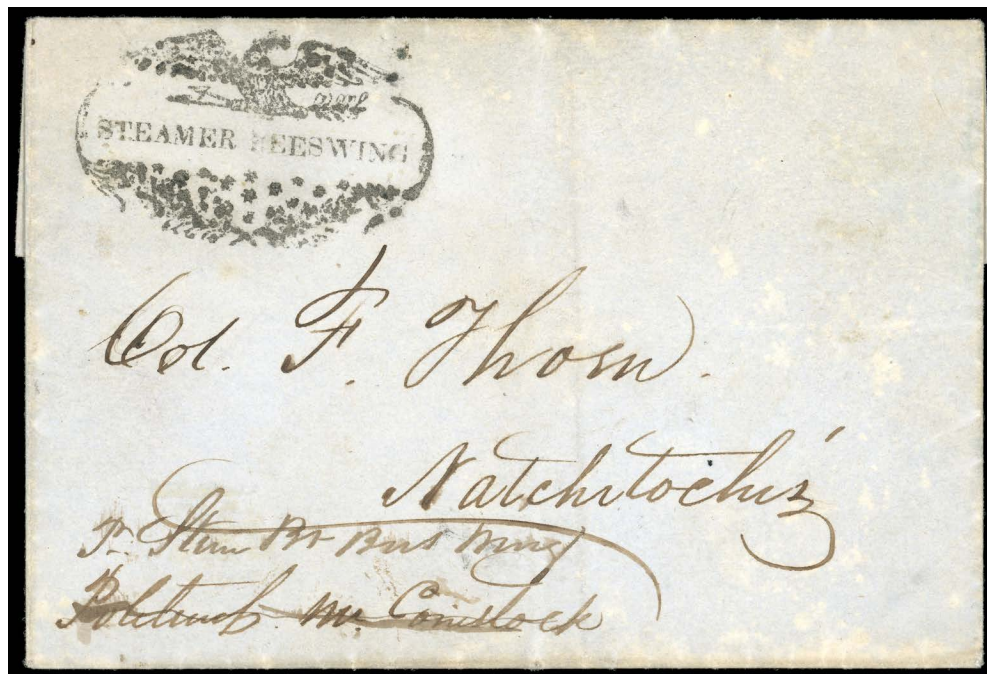 STEAMER BEESWING
Col. F. Thorn.
Natchitoches
Pr Stem Bt Bees Wing
Politeness Mr. Comstock